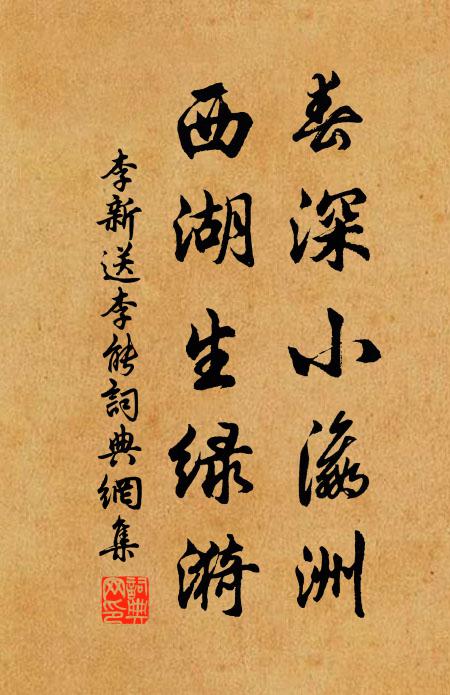 春深小瀛洲
西湖生緑漪
李新送李能詞典網集
詞典
网印